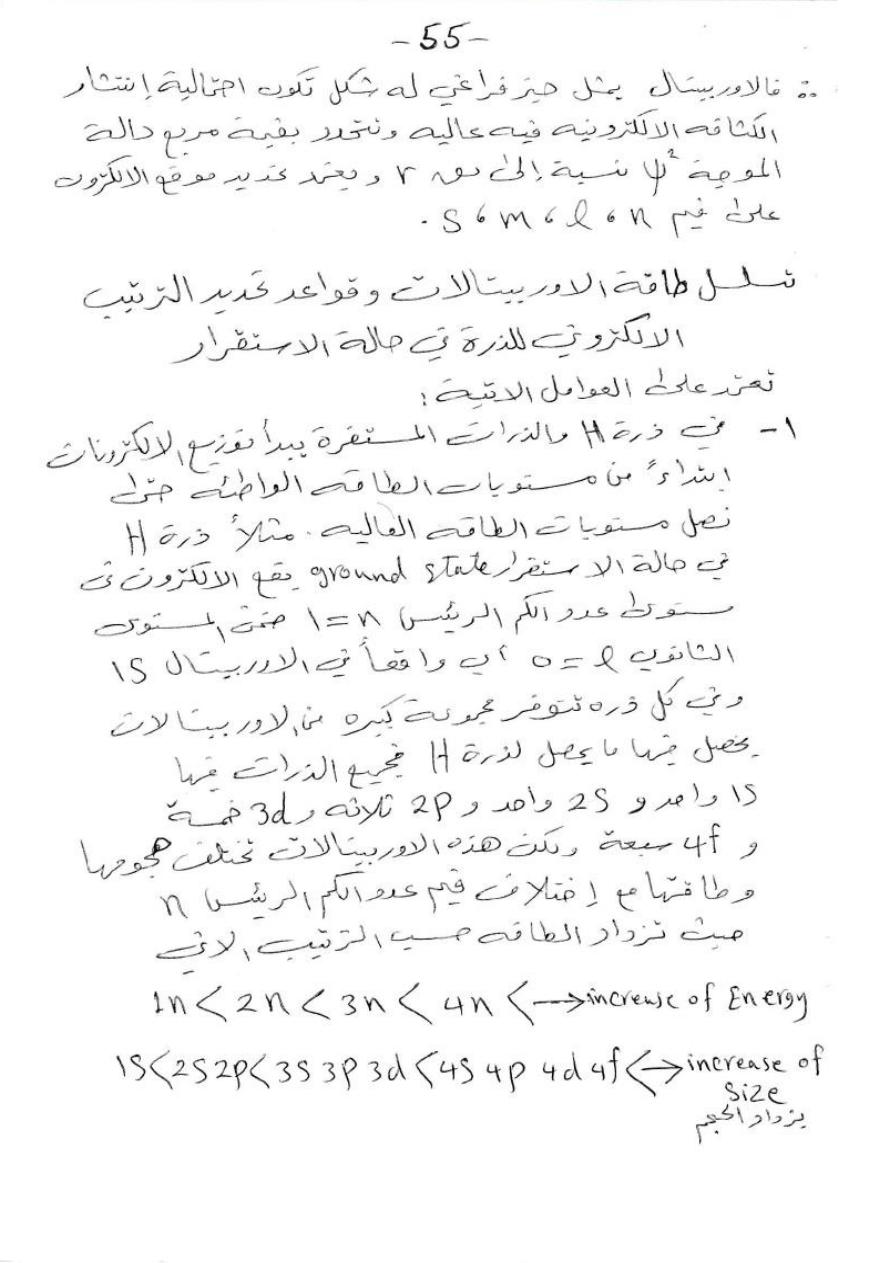 -55-
∴ فالاوربيتال يمثل حيز فراغي له شكل تكون احتمالية إنتشار
الكثافه الالكترونيه فيه عاليه وتتحدد بقيمة مربع دالة
الموجة ψ² نسبة إلى r ويعتمد تحديد موقع الالكترون
على قيم n ، l ، m ، s .
تسلسل طاقة الاوربيتالات وقواعد تحديد الترتيب
الالكتروني للذرة في حالة الاستقرار
تعتمد على العوامل الاتية :
١- في ذرة H والذرات المستقرة يبدأ توزيع الالكترونات
إبتداءً من مستويات الطاقه الواطئه حتى
نصل مستويات الطاقه العاليه . مثلاً ذرة H
في حالة الاستقرار ground state يقع الالكترون في
مستوى عدد الكم الرئيس n = 1 ضمن المستوى
الثانوي l = 0 أي واقعاً في الاوربيتال 1S
وفي كل ذره تتوفر مجموعة كبيره من الاوربيتالات
يحصل فيها ما يحصل لذرة H فجميع الذرات فيها
1S واحد و 2S واحد و 2P ثلاثه و 3d خمسة
و 4f سبعة ولكن هذه الاوربيتالات تختلف حجومها
وطاقتها مع إختلاف قيم عدد الكم الرئيس n
حيث تزداد الطاقه حسب الترتيب الاتي
1n < 2n < 3n < 4n < → increase of Energy
1S < 2S 2p < 3S 3p 3d < 4S 4p 4d 4f < → increase of
Size
يزداد الحجم